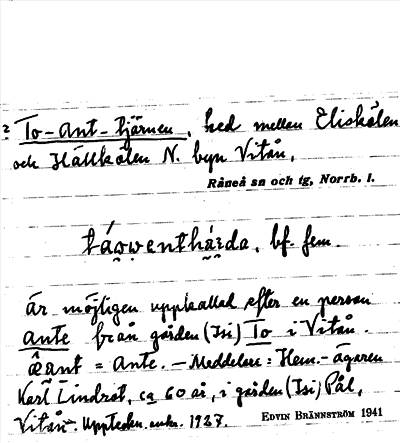 2 To-Ant-tjärnen, hed mellan Eliskölen
och Hällkölen N. byn Vitån,
Råneå sn och tg, Norrb. l.
bf. fem.
är möjligen uppkallad efter en person
Ante från gården (Isi) To i Vitån.
= Ante. – Meddelare: Hem.-ägaren
Karl Lindrot, ca 60 år, i gården (Isi) Pål,
Vitån. Upptecken. ankr. 1937.
EDVIN BRÄNNSTRÖM 1941